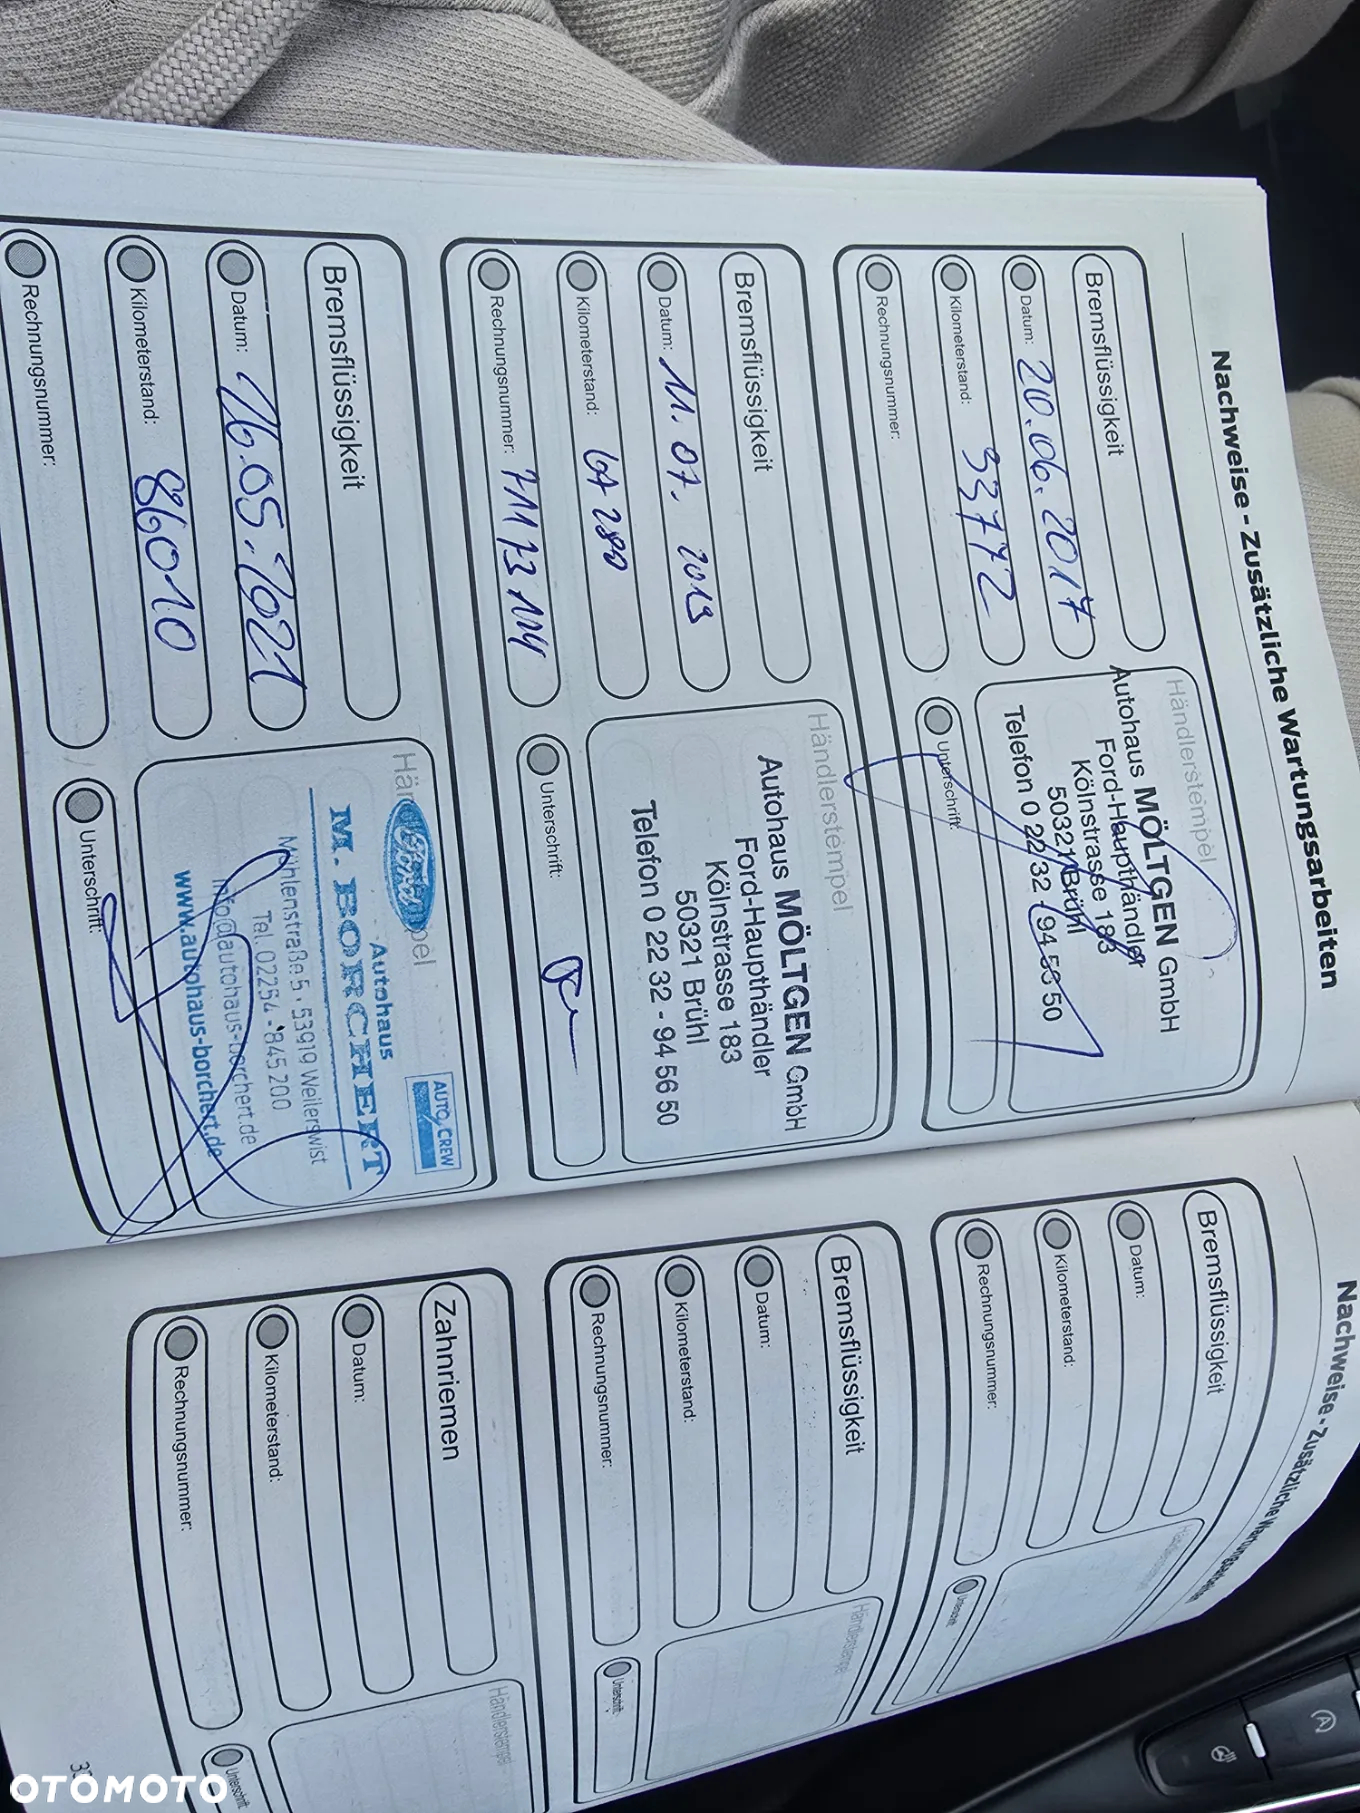 Nachweise - Zusätzliche Wartungsarbeiten
Bremsflüssigkeit
Datum: 20.06.2017
Kilometerstand: 33772
Rechnungsnummer:
Händlerstempel
Autohaus MÖLTGEN GmbH
Ford-Haupthändler
Kölnstrasse 183
50321 Brühl
Telefon 0 22 32 - 94 56 50
Unterschrift:
Bremsflüssigkeit
Datum: 11.07.2019
Kilometerstand: 67280
Rechnungsnummer: 71173114
Händlerstempel
Autohaus MÖLTGEN GmbH
Ford-Haupthändler
Kölnstrasse 183
50321 Brühl
Telefon 0 22 32 - 94 56 50
Unterschrift:
Bremsflüssigkeit
Datum: 26.05.2021
Kilometerstand: 86010
Rechnungsnummer:
Ford
AUTO CREW
Autohaus
M. BORCHERT
Mühlenstraße 5 · 53919 Weilerswist
Tel. 02254 - 845 200
info@autohaus-borchert.de
www.autohaus-borchert.de
Unterschrift:
Nachweise - Zusätzliche Wartungsarbeiten
Bremsflüssigkeit
Datum:
Kilometerstand:
Rechnungsnummer:
Händlerstempel
Unterschrift:
Bremsflüssigkeit
Datum:
Kilometerstand:
Rechnungsnummer:
Händlerstempel
Unterschrift:
Zahnriemen
Datum:
Kilometerstand:
Rechnungsnummer:
Händlerstempel
Unterschrift:
OTOMOTO